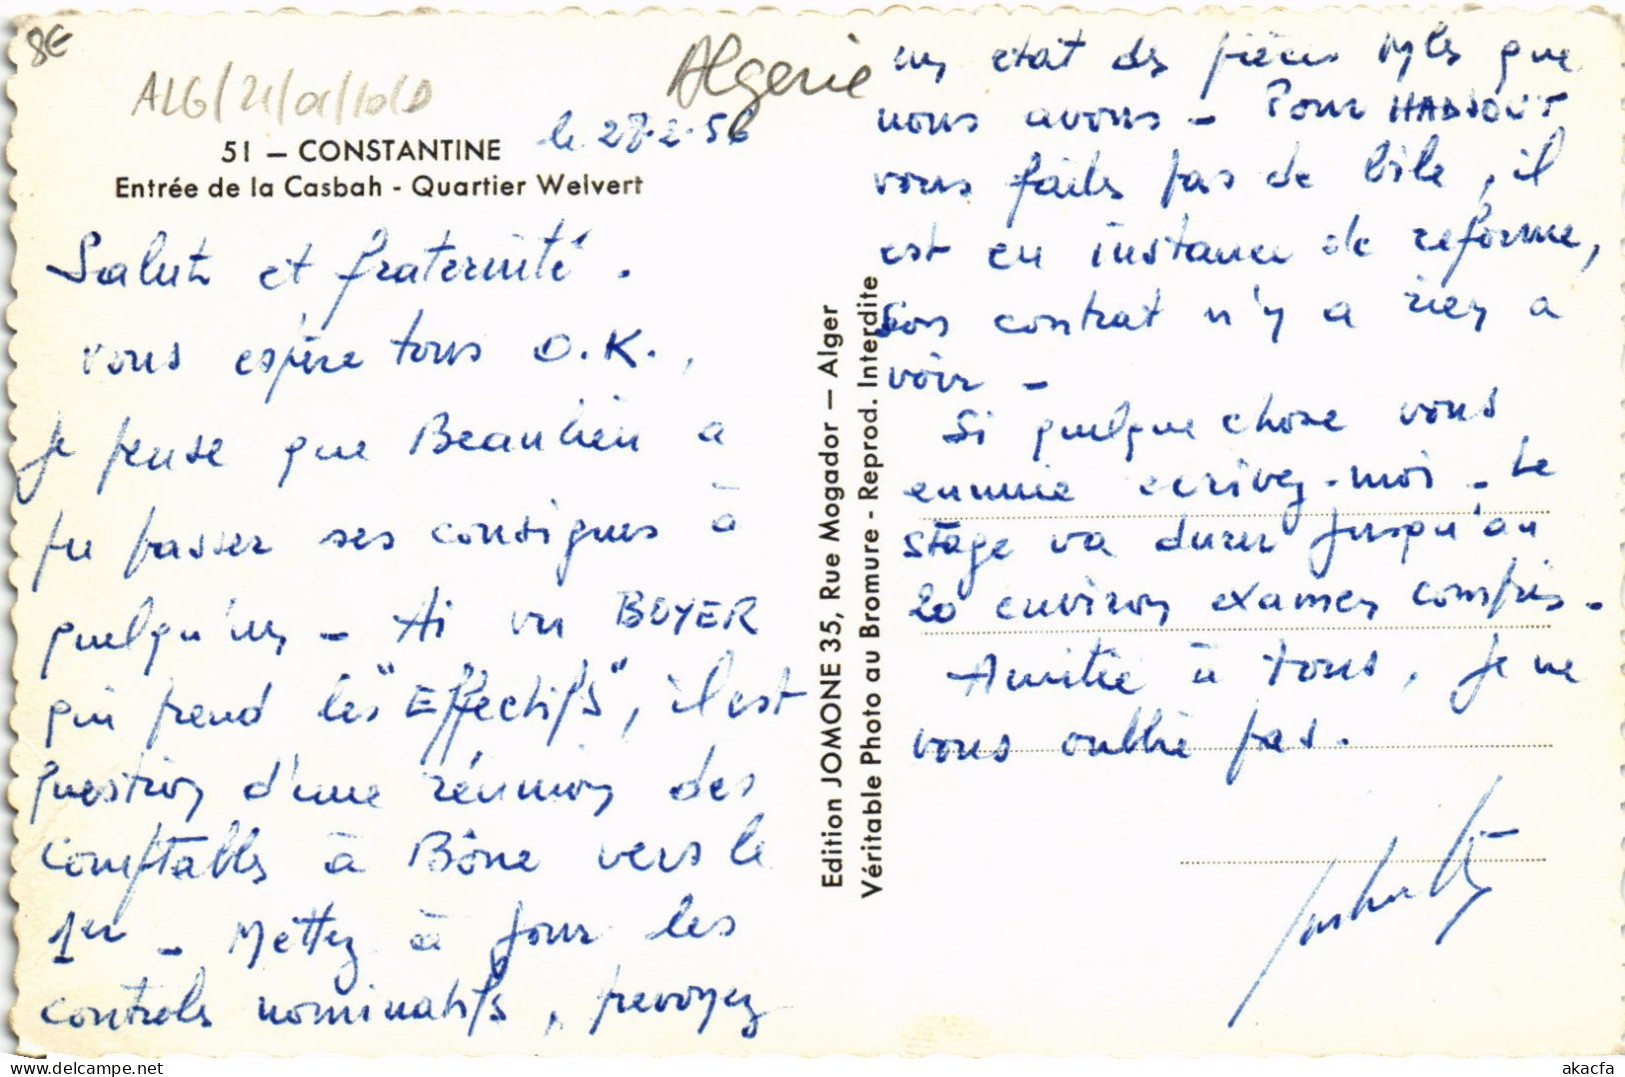 8€
Algerie
51 — CONSTANTINE
Entrée de la Casbah - Quartier Welvert
le 28-2-56
Salut et fraternité.
vous espère tous O.K.,
Je pense que Beaulieu a
pu passer ses consignes à
quelqu'un - Ai vu BOYER
qui prend les "Effectifs", il est
question d'une réunion des
Comptables à Bône vers le
1er - Mettez à jour les
controles nominatifs, prevoyez
Edition JOMONE 35, Rue Mogador — Alger
Véritable Photo au Bromure - Reprod. Interdite
un état des pièces que
nous avons - Pour HADJOUT
vous faites pas de bile, il
est en instance de reforme,
son contrat n'y a rien a
voir -
Si quelque chose vous
ennuie ecrivez-moi - Le
stage va durer jusqu'au
20 environ examen compris -
Amitié à tous, je ne
vous oublie pas.
akacfa